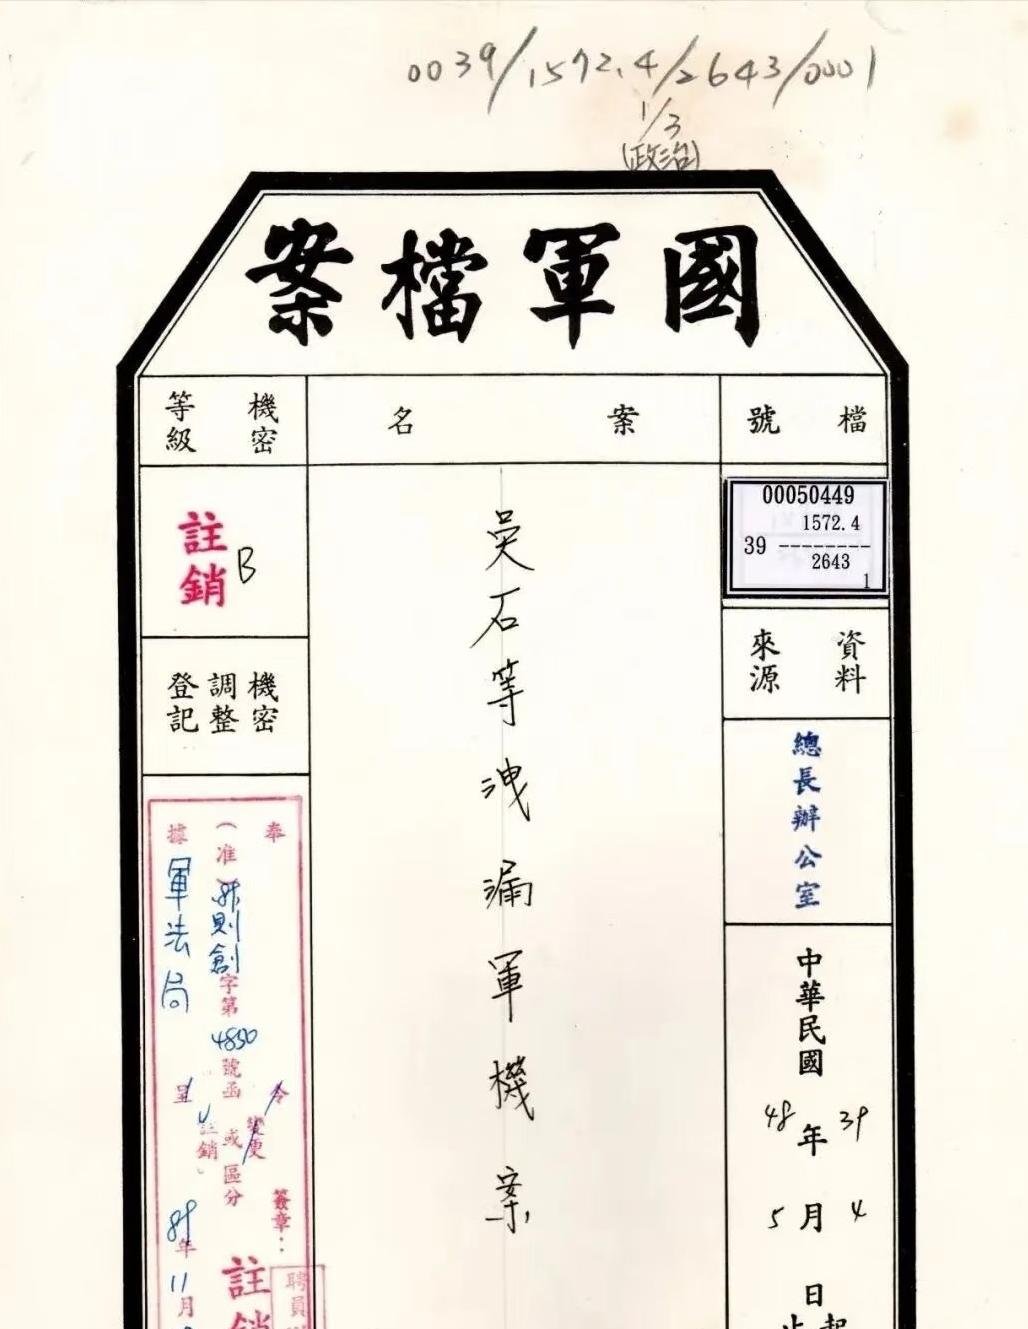 0039/1572.4/2643/0001
1/3
(政治)
國軍檔案
檔號
案名
機密等級
00050449
1572.4
39 --------
2643
1
資料來源
總長辦公室
中華民國
39年4月
48年5月
日起
止
吳石等洩漏軍機案
註銷
B
機密調整登記
奉
令
(准)則創字第4850號函
據軍法局呈
變更
或區分
註銷
簽章:
89年11月
註銷
聘員